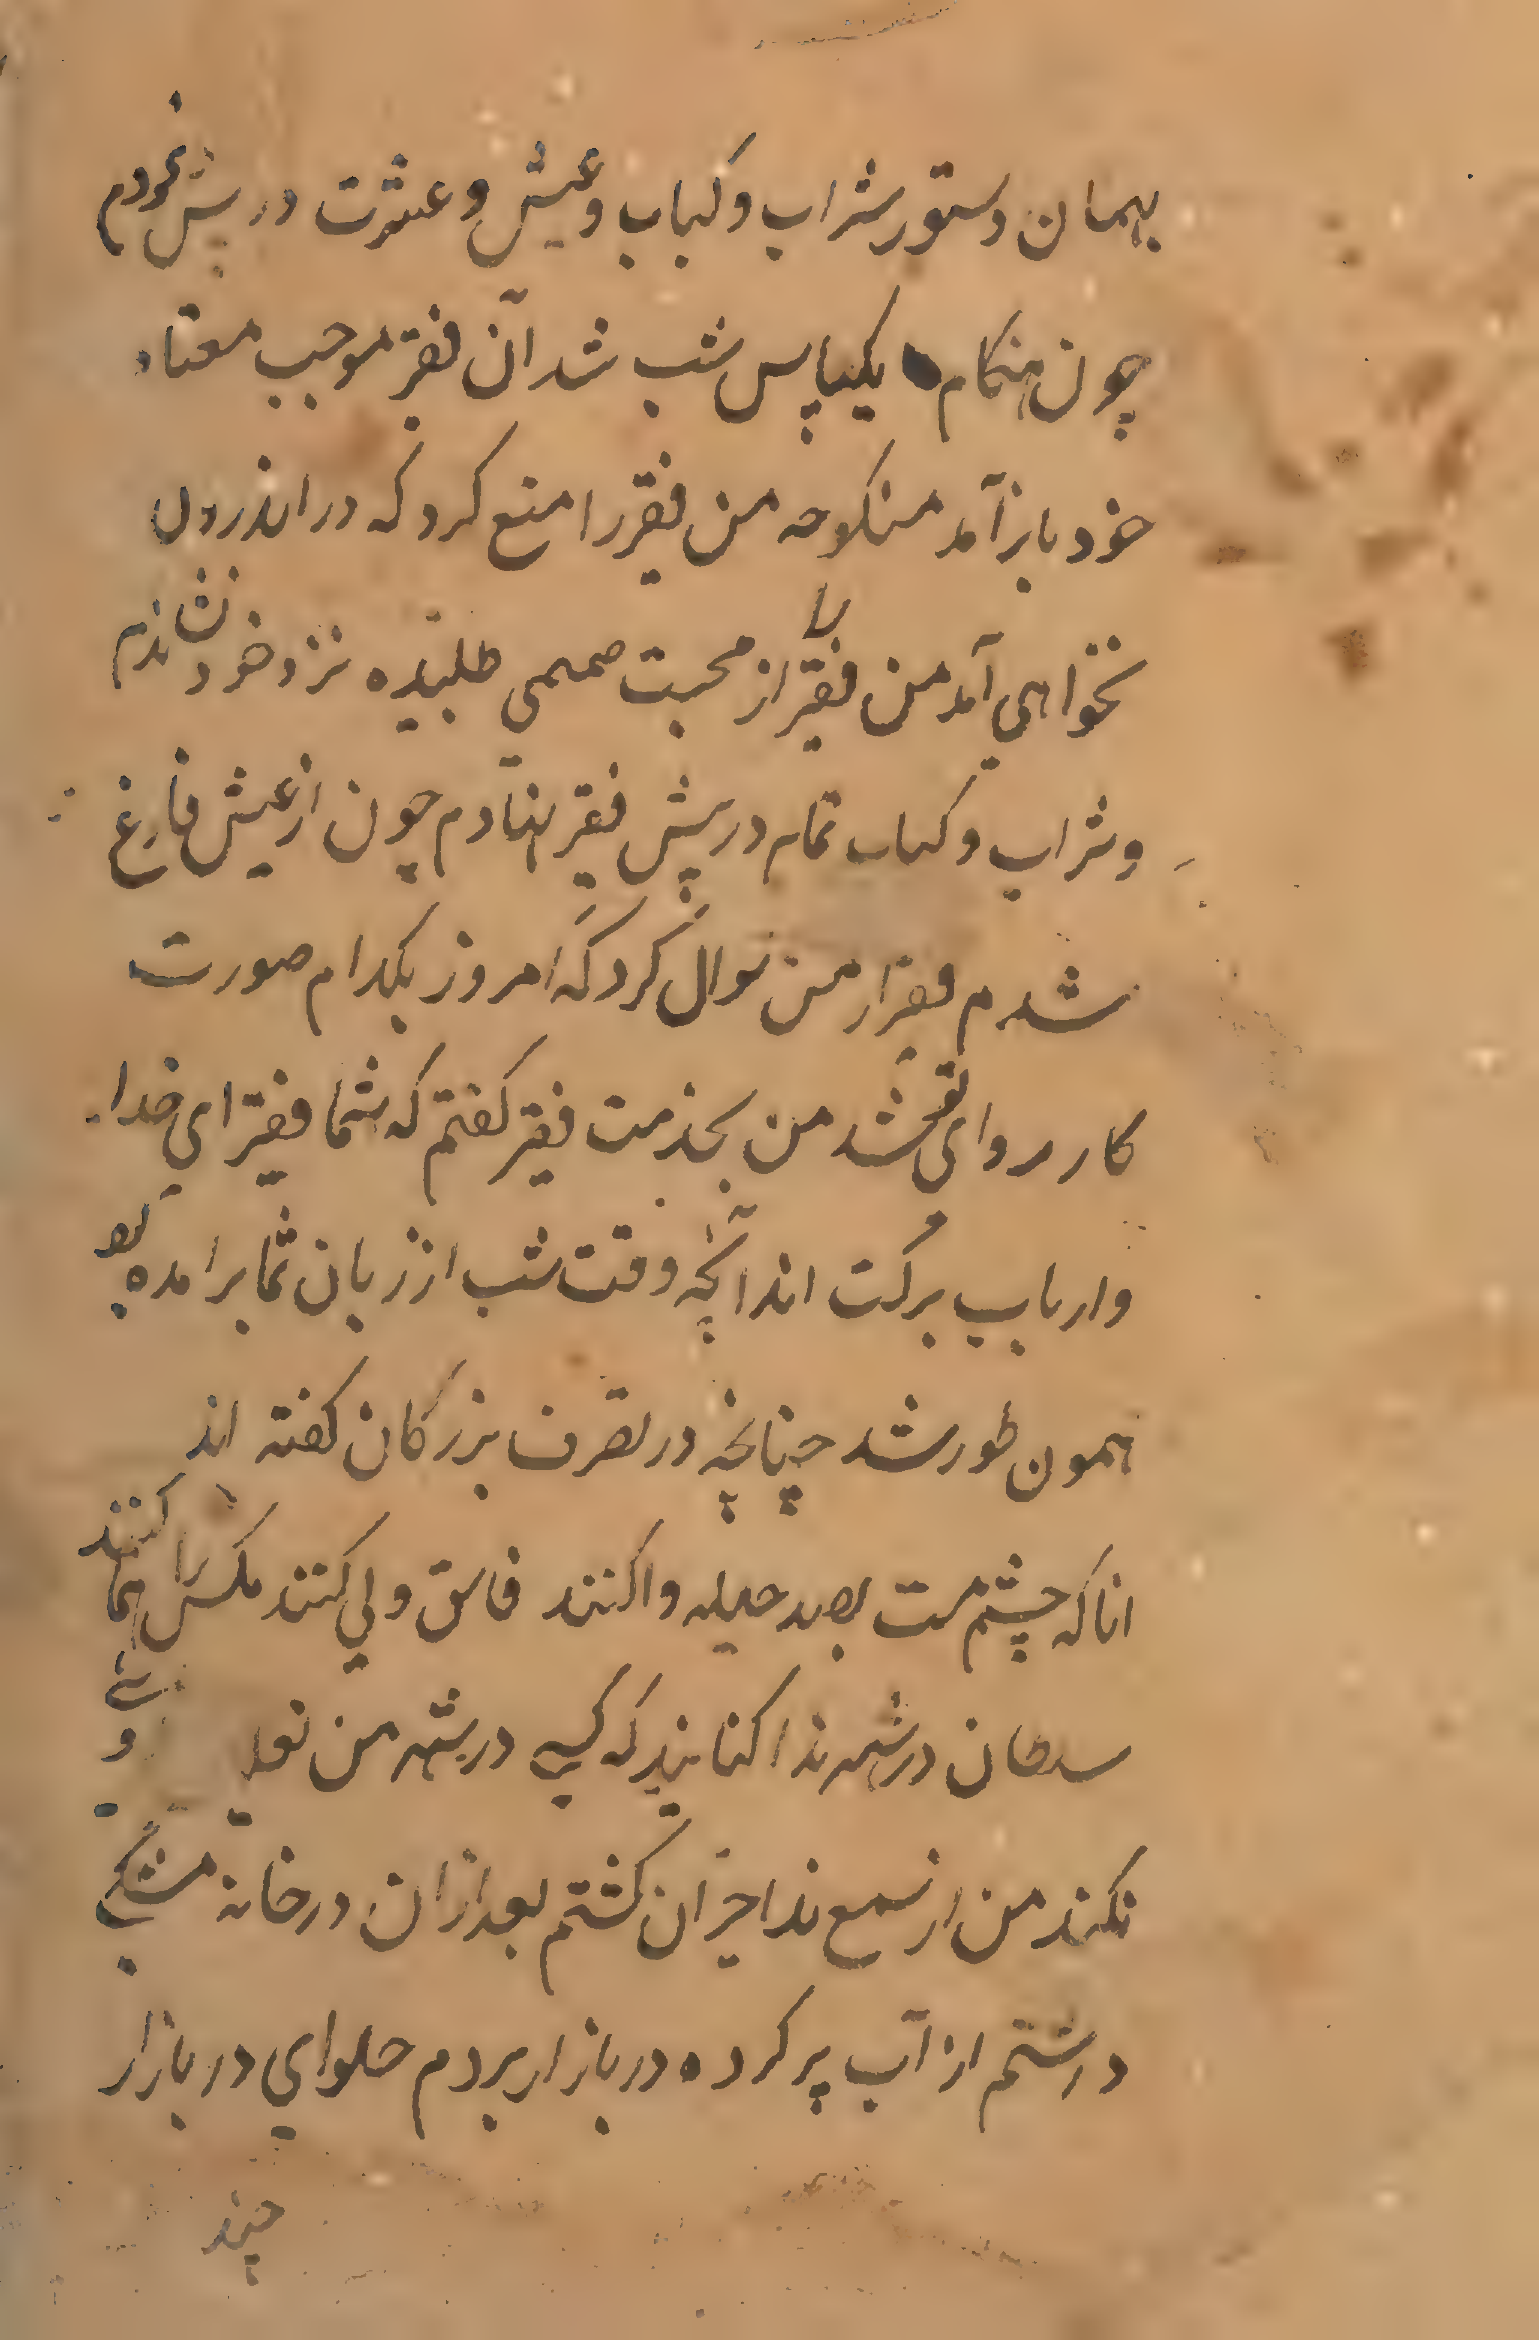 بهمان دستور شراب و کباب و عیش و عشرت در پیش نمودم
چون هنکام یکپاس شب شد آن فقیر موجب معتاد
خود باز آمد منکوحه من فقیر را منع کرد که در اندرون
نخواهي آمد من فقیر را از محبت صمیمي طلبیده نزد خود نشاندم
و شراب و کباب تمام در پیش فقیر نهادم چون از عیش فارغ
شدم فقیر از من سوال کرد که امروز بکدام صورت
کار روای تو شد من بخدمت فقیر کفتم که شما فقیراي خدا
و ارباب برکت اند آنچه وقت شب از زبان شما برامده بود
همون طور شد چنانچه در تصرف بزرکان کفته اند
انا که چشم مست بصد حیله وا کنند فاسق ولي کنند مکس را هما کنند
سلطان در شهر ندا کنانید که کسي در شهر من
نکند من از سمع ندا حیران کشتم بعد ازان در خانه مشکي
داشتم از آب پر کرده در بازار بردم حلواي در بازار
چند